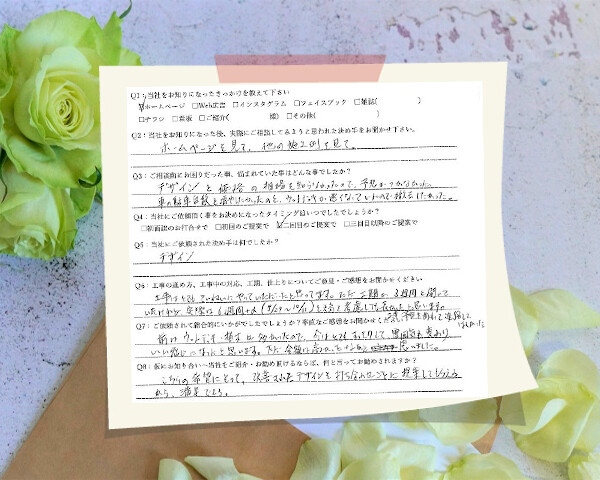 Q1：当社をお知りになったきっかけを教えて下さい
☑ホームページ □Web広告 □インスタグラム □フェイスブック □雑誌( )
□チラシ □看板 □ご紹介( 様) □その他( )
Q2：当社をお知りになった後、実際にご相談してみようと思われた決め手をお聞かせ下さい。
ホームページを見て、他の施工例を見て。
Q3：ご相談前にお困りだった事、悩まれていた事はどんな事でしたか？
デザインと価格の相場を知らなかったので、予想がつかなかった。
車の駐車台数を増やしたかったのと、ウッドデッキが悪くなっていたので撤去したかった。
Q4：当社にご依頼頂く事をお決めになったタイミングはいつでしたでしょうか？
□初面談のお打合せで □初回のご提案で ☑二回目のご提案で □三回目以降のご提案で
Q5：当社にご依頼された決め手は何でしたか？
デザイン
Q6：工事の進め方、工事中の対応、工期、仕上りについてご意見・ご感想をお聞かせください
工事はとてもていねいにやっていただいたと思ってます。ただ工期が3週間と聞いて
いたけど 実際は
Q7：ご依頼されて総合的にいかがでしたでしょうか？率直なご感想をお聞かせください
前は ウッドデッキ
いい感じになったと思います。
思いました。
Q8：仮にお知り合いへ当社をご紹介・お勧め頂けるならば、何と言ってお勧めされますか
こちらの希望にそって、改善されたデザインを打ち合わせごとに提案してもらえる
から、満足できる。